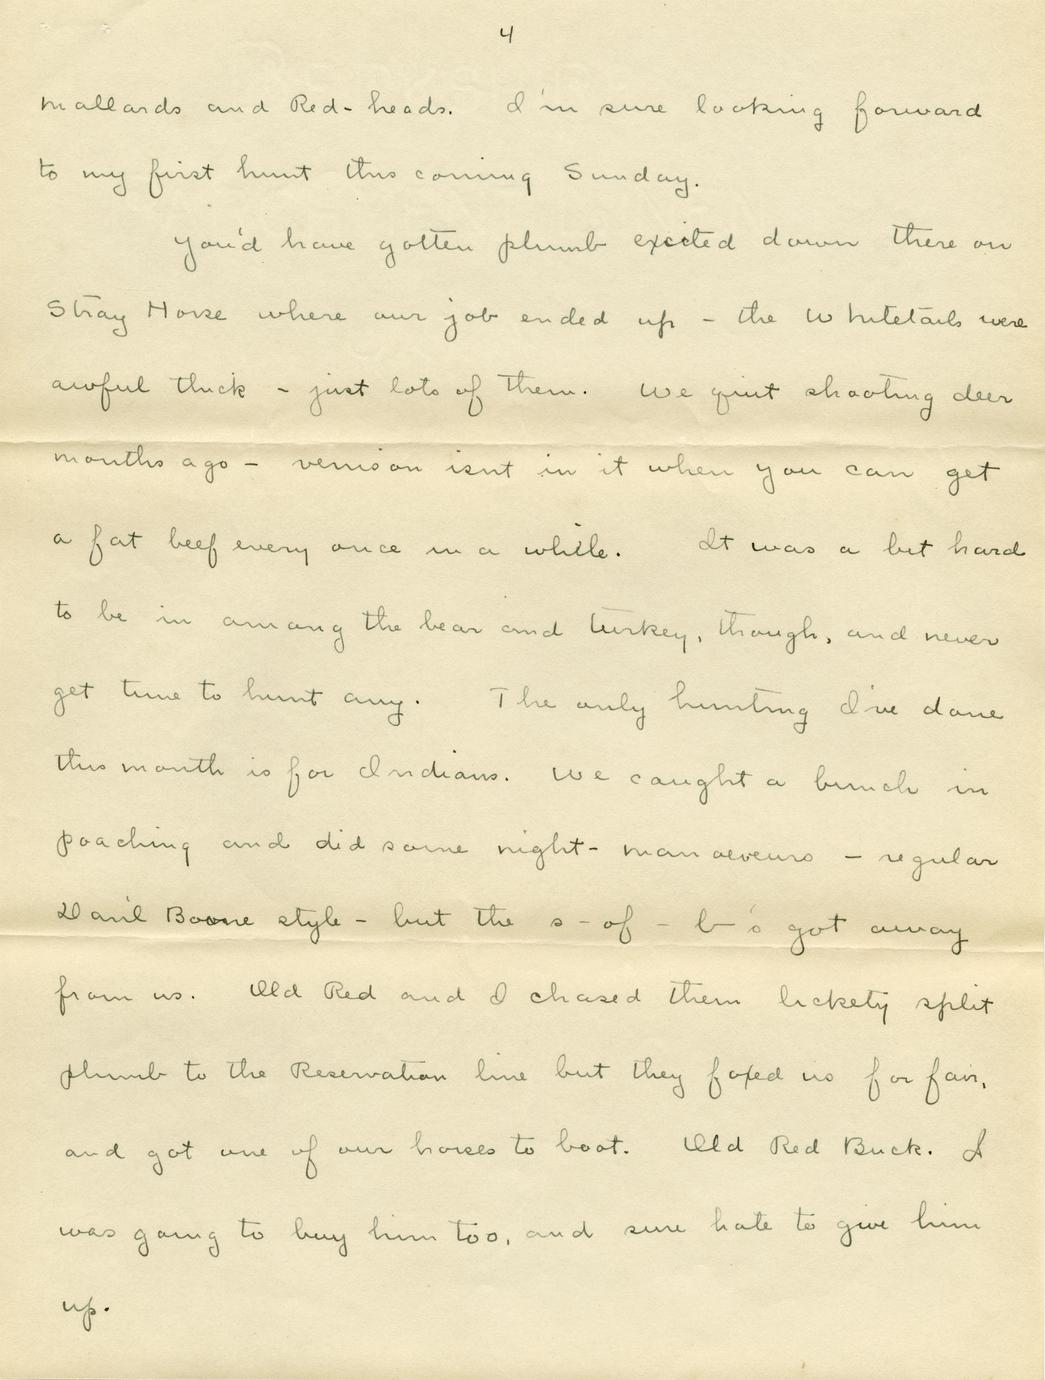 4
mallards and Red-heads. I'm sure looking forward
to my first hunt this coming Sunday.
You'd have gotten plumb excited down there on
Stray Horse where our job ended up - the Whitetails were
awful thick - just lots of them. We quit shooting deer
months ago - venison isnt in it when you can get
a fat beef every once in a while. It was a bit hard
to be in among the bear and turkey, though, and never
get time to hunt any. The only hunting I've done
this month is for Indians. We caught a bunch in
poaching and did some night-manoeveurs - regular
Dan'l Boone style - but the s-of-b's got away
from us. Old Red and I chased them lickety split
plumb to the Reservation line but they foxed us for fair,
and got one of our horses to boot. Old Red Buck. I
was going to buy him too, and sure hate to give him
up.